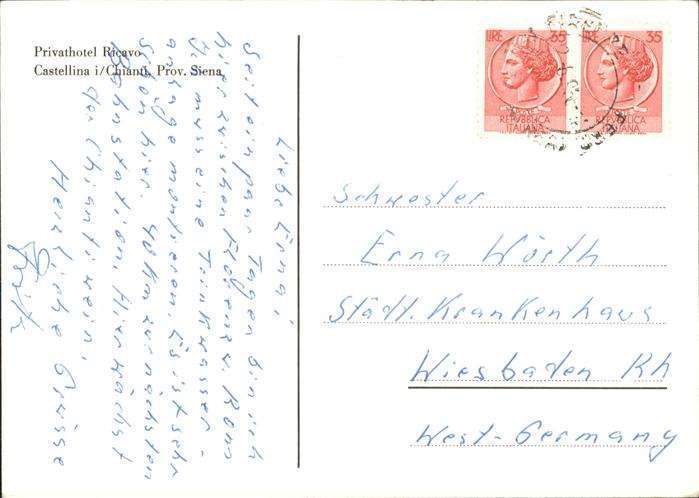 Privathotel Ricavo
Castellina i/Chianti, Prov. Siena
Liebe Erna,
Seit ein paar Tagen bin ich
hier zwischen Florenz u. Rom
Ich muss eine Trinkwasser-
anlage montieren. Es ist sehr
schön hier. 40 km zur nächsten
Bahnstation. Hier wächst
der Chiantiwein,
Herzliche Grüsse
Fritz
LIRE 35
REPVBBLICA
ITALIANA
LIRE 35
REPVBBLICA
ITALIANA
Schwester
Erna Wörth
Städt. Krankenhaus
Wiesbaden Rh
West-Germany